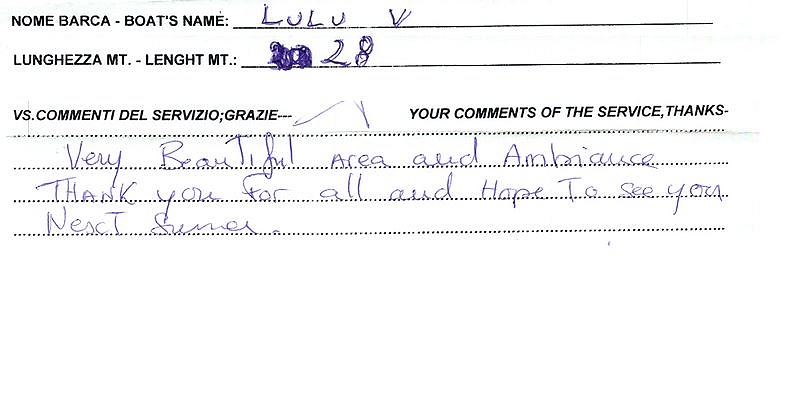 NOME BARCA - BOAT'S NAME: LULU V
LUNGHEZZA MT. - LENGHT MT.: 28
VS.COMMENTI DEL SERVIZIO;GRAZIE--- YOUR COMMENTS OF THE SERVICE,THANKS-
Very Beautiful Area and Ambiance
THANK you For all and Hope To see you
Next Sumer.